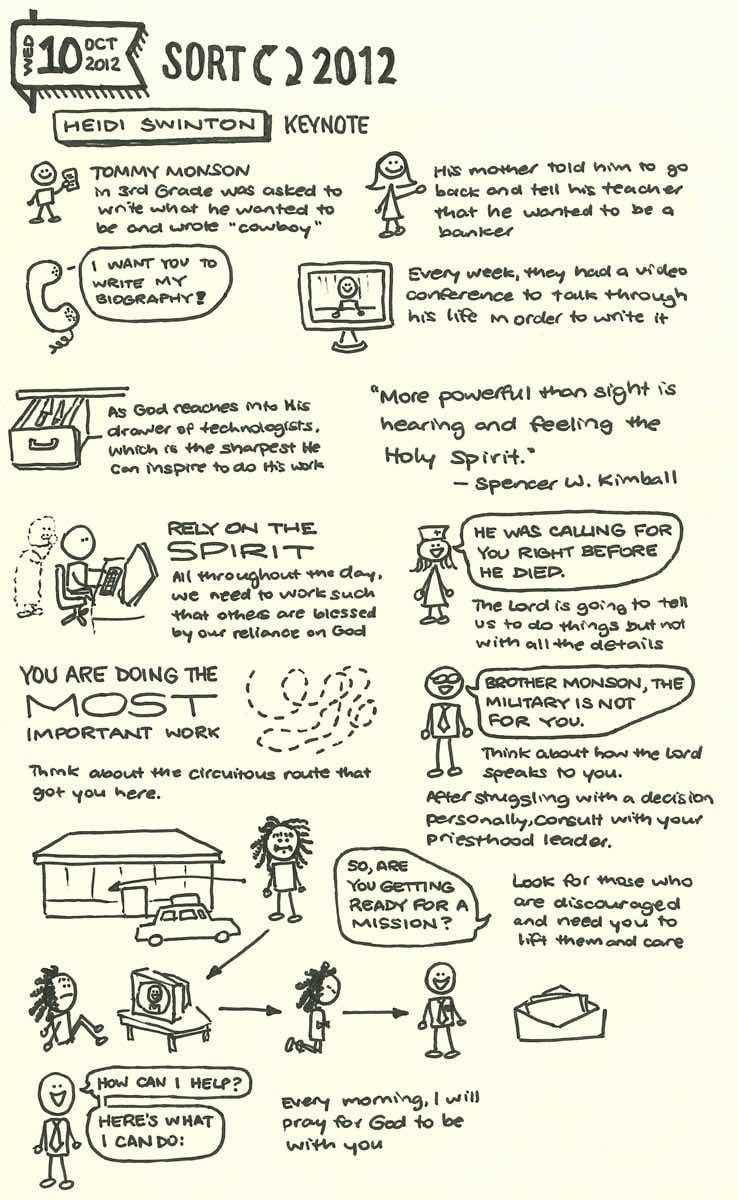 WED 10 OCT 2012
SORT() 2012
HEIDI SWINTON KEYNOTE
TOMMY MONSON
in 3rd Grade was asked to
write what he wanted to
be and wrote "cowboy"
His mother told him to go
back and tell his teacher
that he wanted to be a
banker
I WANT YOU TO
WRITE MY
BIOGRAPHY!
Every week, they had a video
conference to talk through
his life in order to write it
As God reaches into His
drawer of technologists,
which is the sharpest He
can inspire to do His work
"More powerful than sight is
hearing and feeling the
Holy Spirit."
— Spencer W. Kimball
RELY ON THE
SPIRIT
All throughout the day,
we need to work such
that others are blessed
by our reliance on God
HE WAS CALLING FOR
YOU RIGHT BEFORE
HE DIED.
The Lord is going to tell
us to do things but not
with all the details
YOU ARE DOING THE
MOST
IMPORTANT WORK
Think about the circuitous route that
got you here.
BROTHER MONSON, THE
MILITARY IS NOT
FOR YOU.
Think about how the Lord
speaks to you.
After struggling with a decision
personally, consult with your
priesthood leader.
SO, ARE
YOU GETTING
READY FOR A
MISSION?
Look for those who
are discouraged
and need you to
lift them and care
HOW CAN I HELP?
HERE'S WHAT
I CAN DO:
Every morning, I will
pray for God to be
with you